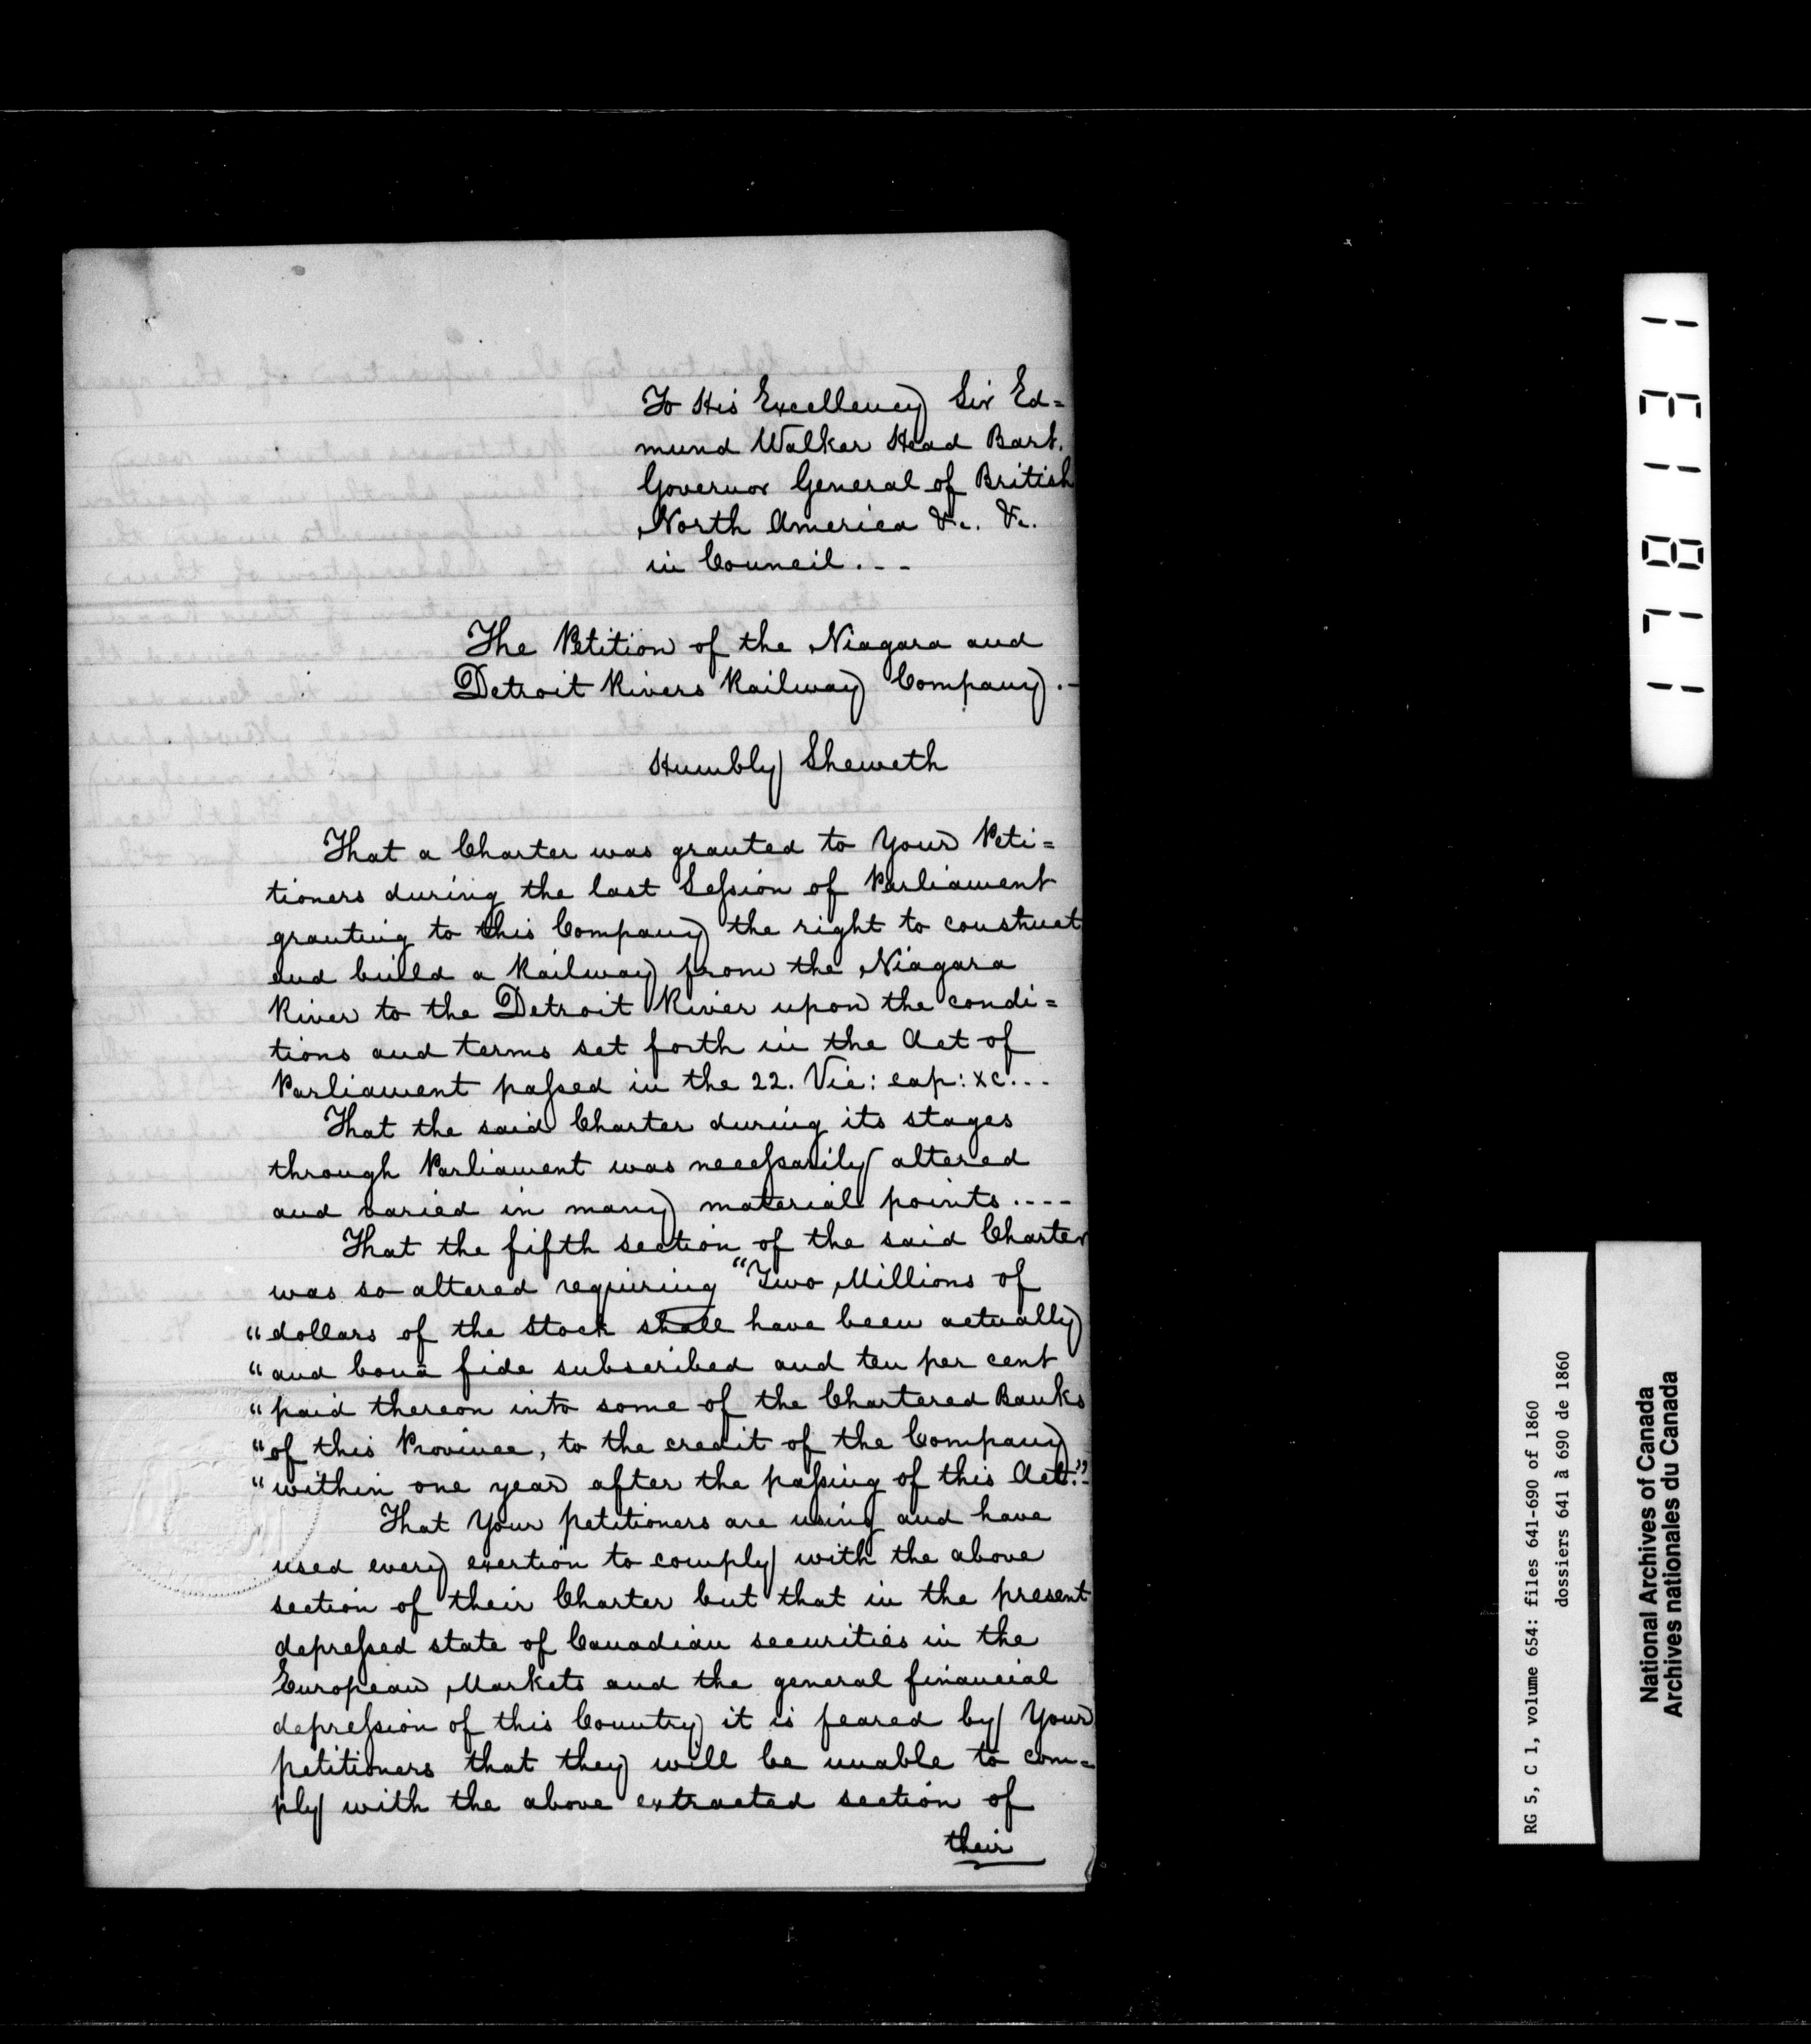 To His Excellency Sir Ed=
mund Walker Head Bart.
Governor General of British
North America &c. &c.
in Council . - -
The Petition of the Niagara and
Detroit Rivers Railway Company . -
Humbly Sheweth
That a Charter was granted to Your Peti=
tioners during the last Session of Parliament
granting to this Company the right to construct
and build a Railway from the Niagara
River to the Detroit River upon the condi=
tions and terms set forth in the Act of
Parliament passed in the 22. Vic: cap: xc...
That the said Charter during its stages
through Parliament was necessarily altered
and varied in many material points ....
That the fifth section of the said Charter
was so altered requiring "Two Millions of
"dollars of the Stock shall have been actually
"and bonâ fide subscribed and ten per cent
"paid thereon into some of the Chartered Banks
"of this Province, to the credit of the Company
"within one year after the passing of this Act."
That Your petitioners are using and have
used every exertion to comply with the above
section of their Charter but that in the present
depressed state of Canadian securities in the
European Markets and the general financial
depression of this Country it is feared by Your
petitioners that they will be unable to com=
ply with the above extracted section of
their
1 3 1 8 7 1
RG 5, C 1, volume 654: files 641-690 of 1860
dossiers 641 à 690 de 1860
National Archives of Canada
Archives nationales du Canada